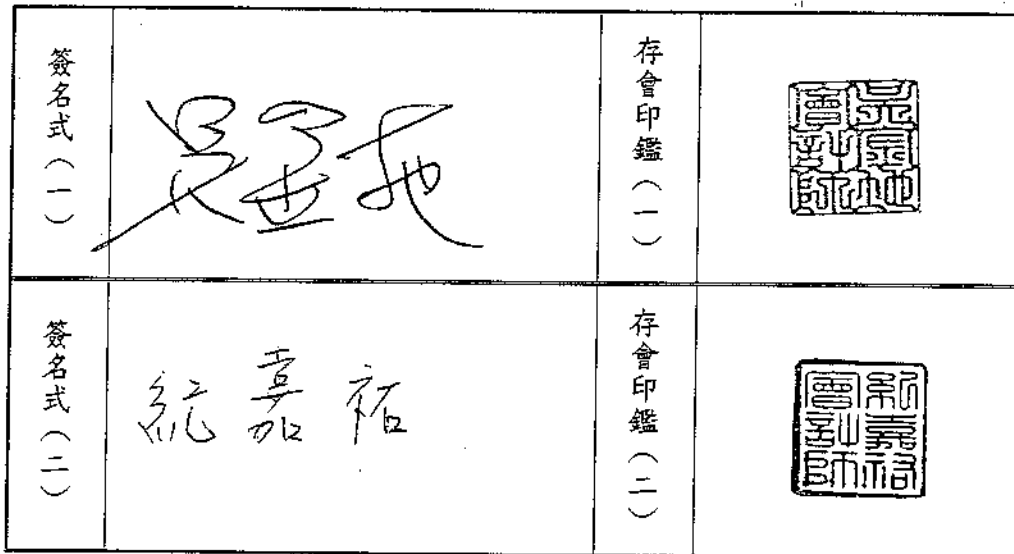 簽名式（一）
存會印鑑（一）
會計師
簽名式（二）
紀嘉祐
存會印鑑（二）
紀嘉祐會計師